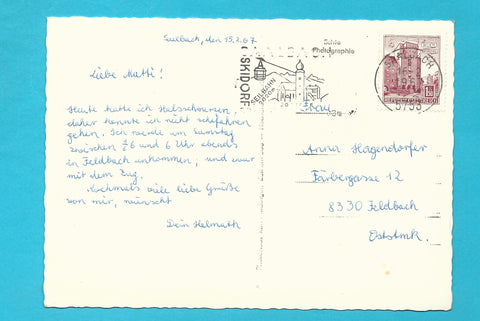 Saalbach, den 15.2.67
Liebe Mutti!
Heute hatte ich Halsschmerzen,
daher konnte ich nicht schifahren
gehen. Ich werde am Samstag
zwischen ½6 und 6 Uhr abends
in Feldbach ankommen; und zwar
mit dem Zug.
Nochmals viele liebe Grüße
von mir, wünscht
Dein Helmuth
Echte
Photographie
SAALBACH
SKIDORF
SEILBAHN
Frau
Anna Hagendorfer
Färbergasse 12
8330 Feldbach
Oststmk.